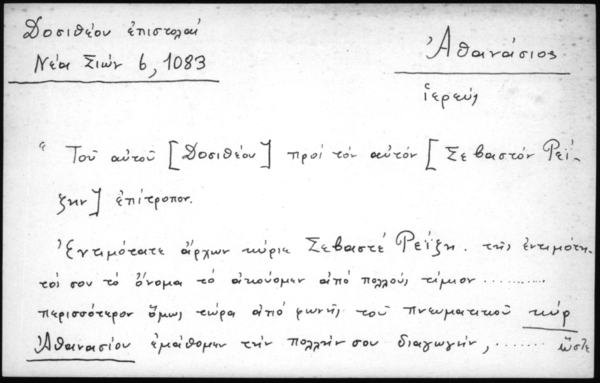 Δοσιθέου ἐπιστολαί
Νέα Σιών 6, 1083
Ἀθανάσιος
ἱερεύς
"Τοῦ αὐτοῦ [Δοσιθέου] πρός τόν αὐτόν [Σεβαστόν Ρεΐ-
ζην] ἐπίτροπον.
Ἐντιμότατε ἄρχων κύριε Σεβαστέ Ρεΐζη. τῆς ἐντιμότη-
τός σου τό ὄνομα τό ἀκούομεν ἀπό πολλούς τίμιον ............
περισσότερον ὅμως τώρα ἀπό φωνῆς τοῦ πνευματικοῦ κύρ
Ἀθανασίου ἐμάθομεν τήν πολλήν σου διαγωγήν, ....... ὥστε